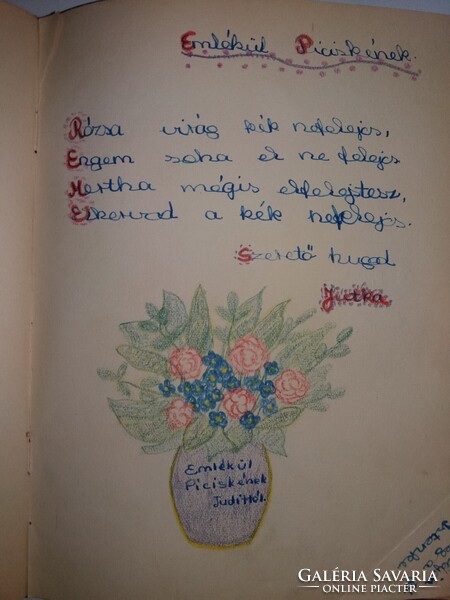 Emlékül Piciskének.
Rózsa virág kék nefelejcs,
Engem soha el ne felejcs
Mertha mégis elfelejtesz,
Elhervad a kék nefelejcs.
Szerető hugod
Jutka
Emlékül
Piciskének
Judittól.
GALÉRIA SAVARIA
ONLINE PIACTÉR